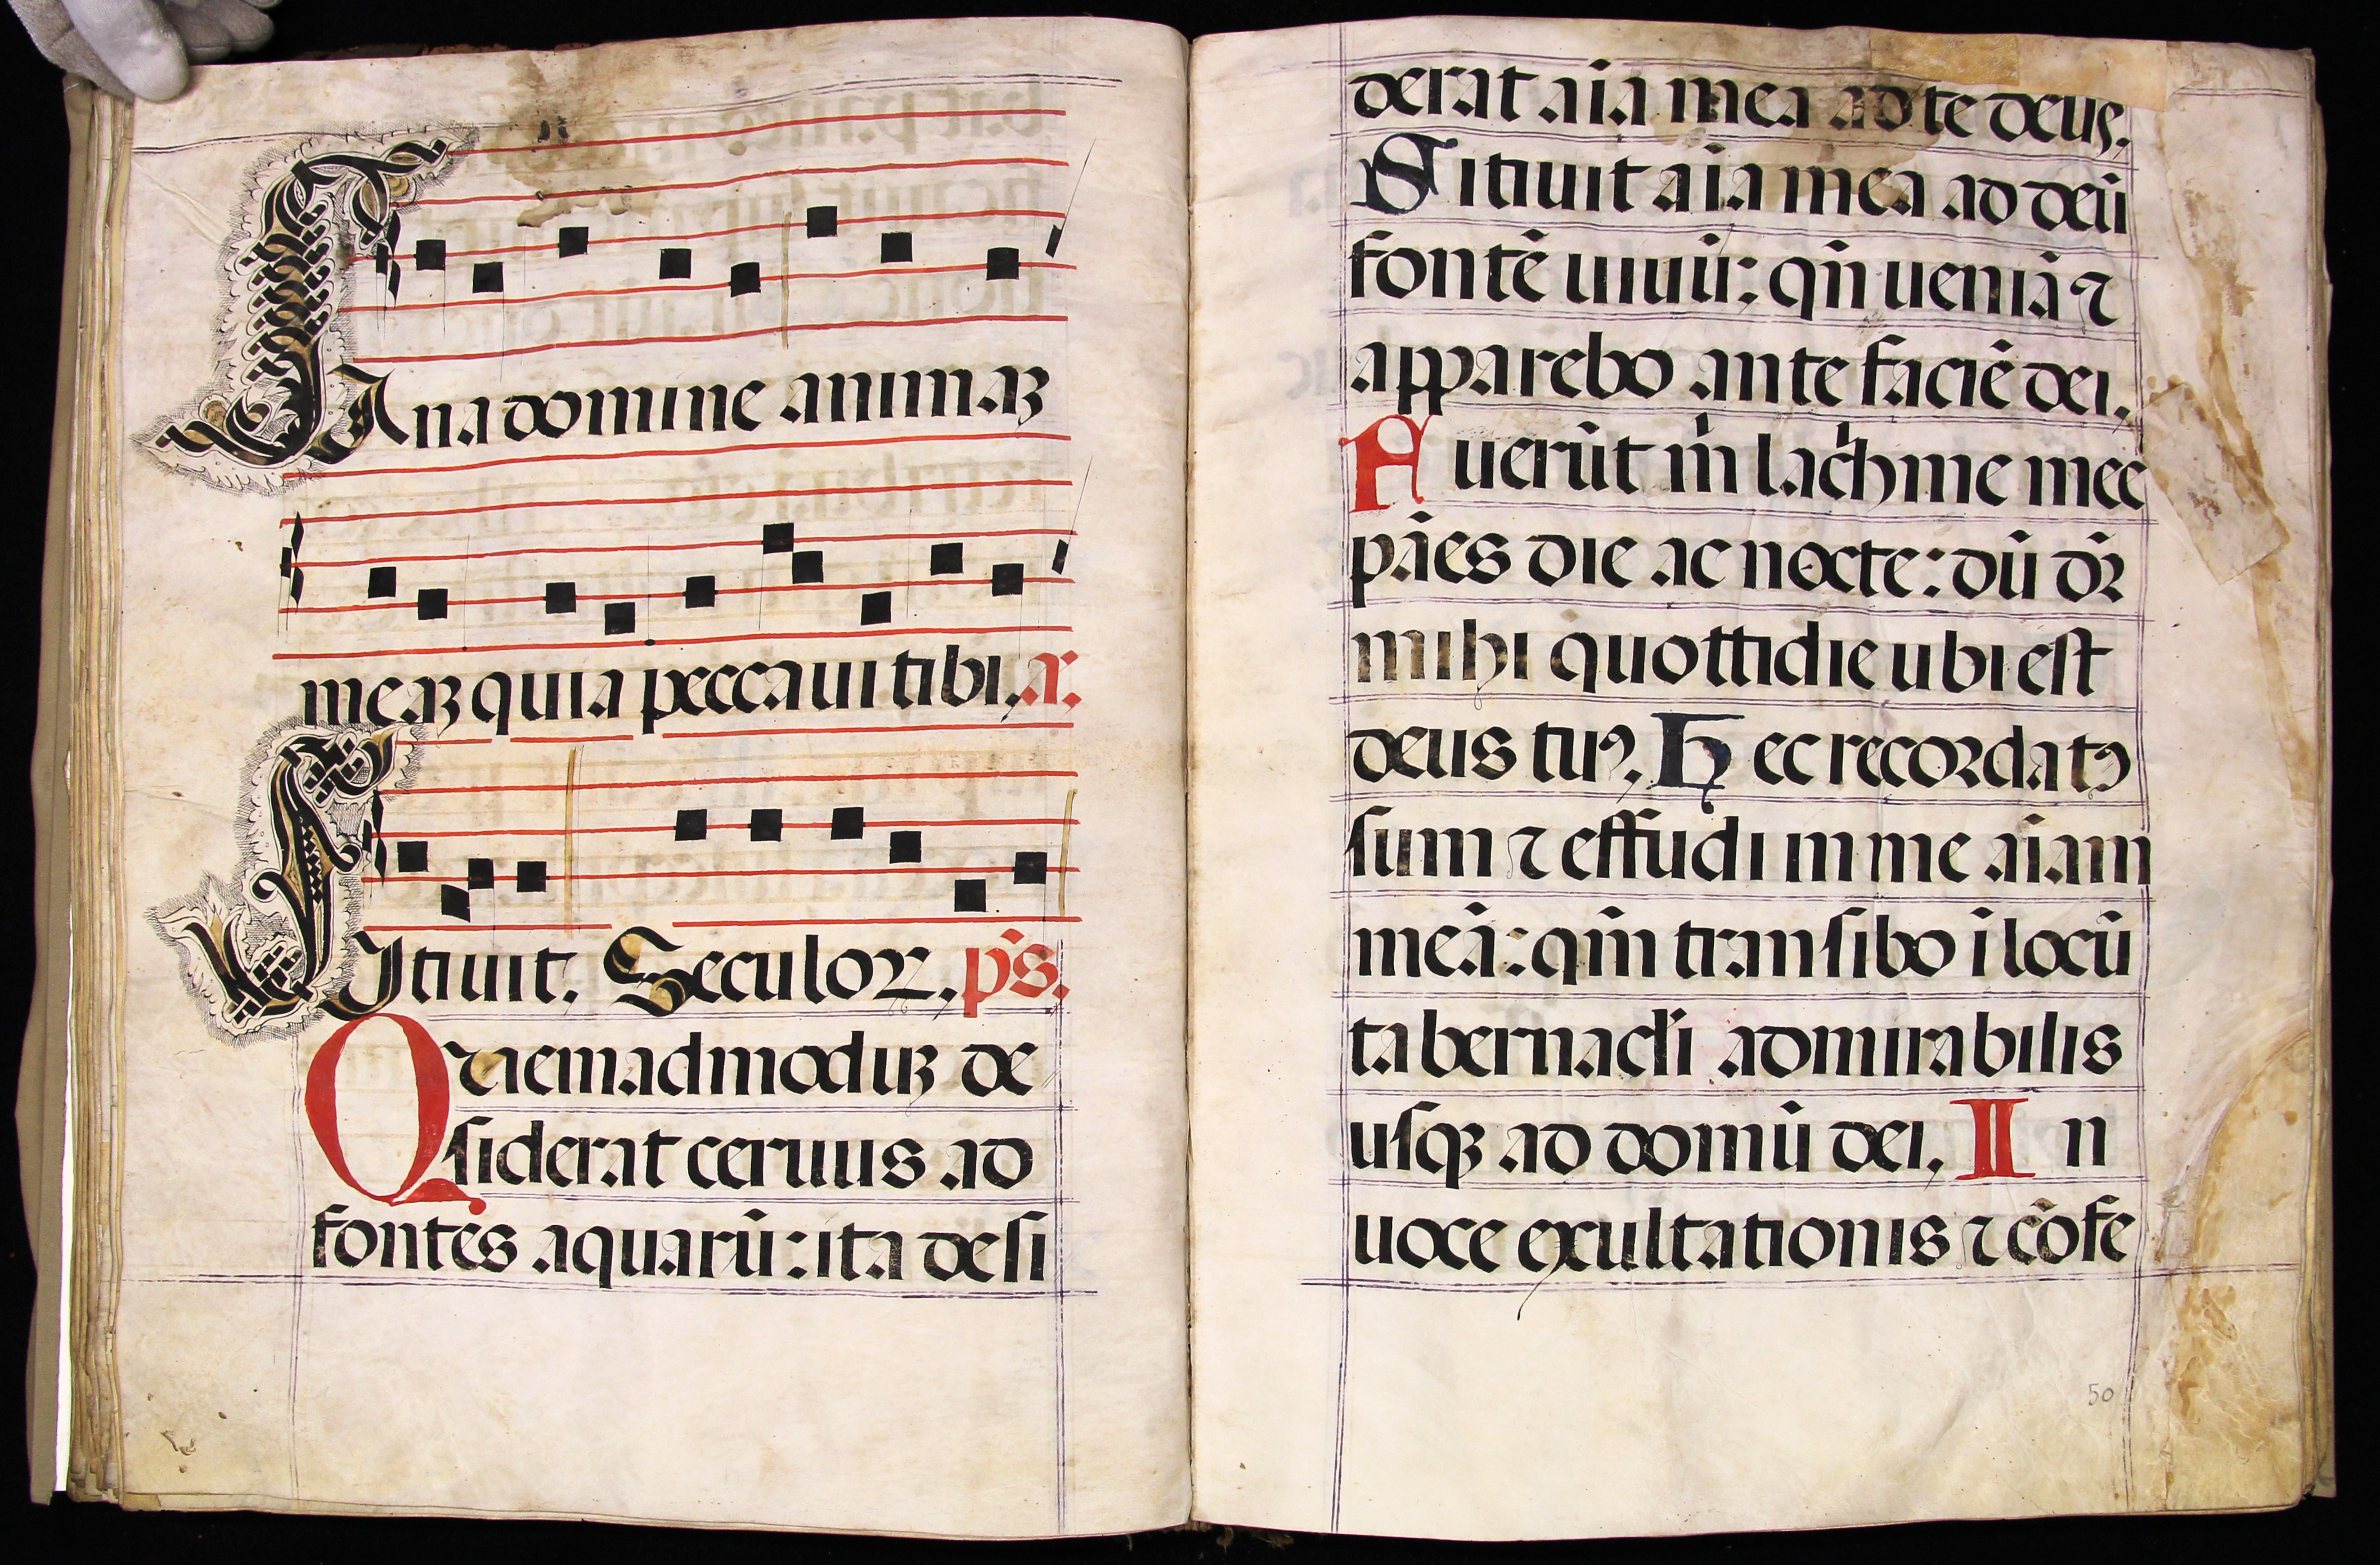 SAna domine animaꝫ
meaꝫ quia peccaui tibi. a.
SItiuit. Seculoꝝ. ps̄.
Quemadmoduꝫ de
siderat ceruus ad
fontes aquarū: ita desi
derat aīa mea ad te deus.
Sitiuit aīa mea ad deū
fontē uiuū: qn̄ ueniā ⁊
apparebo ante faciē dei.
Fuerūt m̄ lach̄me mee
pāes die ac nocte: dū dr̄
mihi quottidie ubi est
deus tuꝰ. Hec recordatꝰ
sum ⁊ effudi in me aīam
meā: qm̄ transibo ī locū
tabernacl̄i admirabilis
usqꝫ ad domū dei. In
uoce exultationis ⁊ cōfe
50